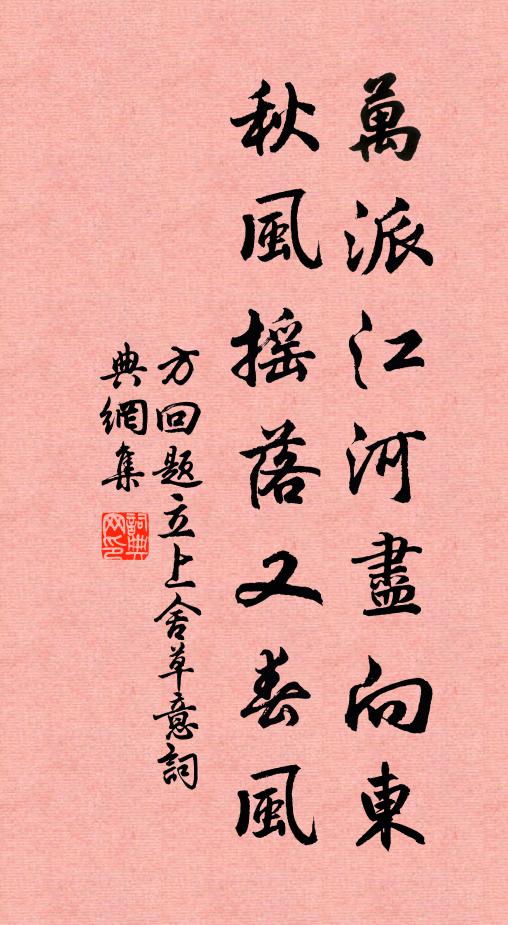 萬派江河盡向東
秋風摇落又春風
方回題立上舍草意詞
典網集
詞典网印